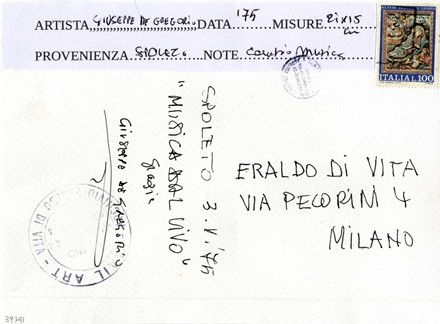 ARTISTA GIUSEPPE DE GREGORIO DATA '75 MISURE 21x15 cm
PROVENIENZA SPOLETO NOTE
ITALIA L.100
SPOLETO 3.V.'75
"MUSICA DAL VIVO"
Grazie
GIUSEPPE DE GREGORIO
ERALDO DI VITA
VIA PECORINI 4
MILANO
IL ART
DI VITA
39741